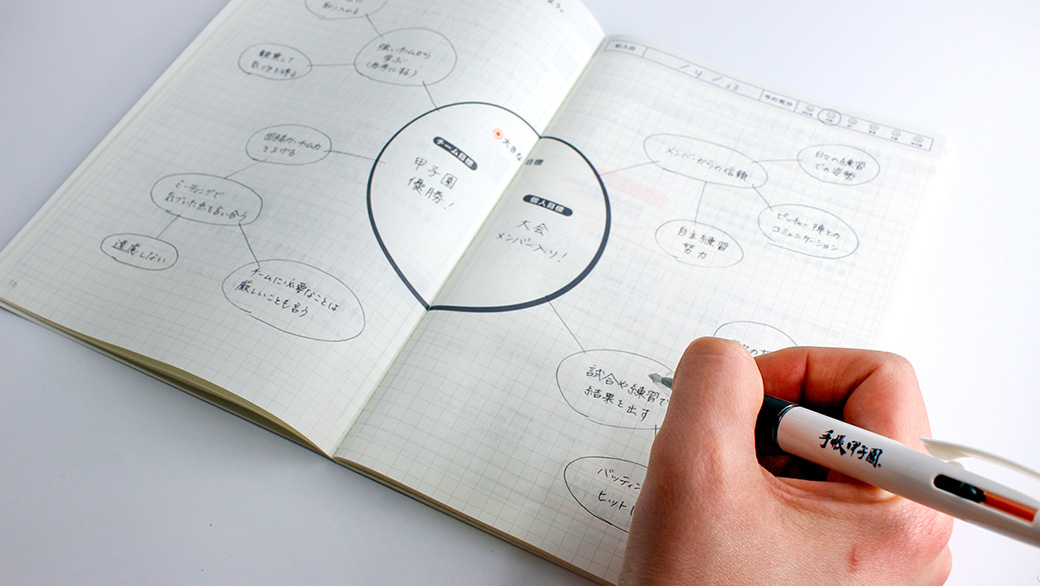 強いチームから
学ぶ
(参考にする)
観察して
団結力・チーム力
を上げる
ミーティングで
気づいた点を言い合う
遠慮しない
チームに必要なことは
厳しいことも言う
大きな
目標
チーム目標
甲子園
優勝!
個人目標
大会
メンバー入り!
記入日
/ 4 / 23
今の気分
メンバーからの信頼
日々の練習
での姿勢
自主練習
努力
ピッチャー陣との
コミュニケーション
試合や練習で
結果を出す
バッティン
ヒット
手帳甲子園